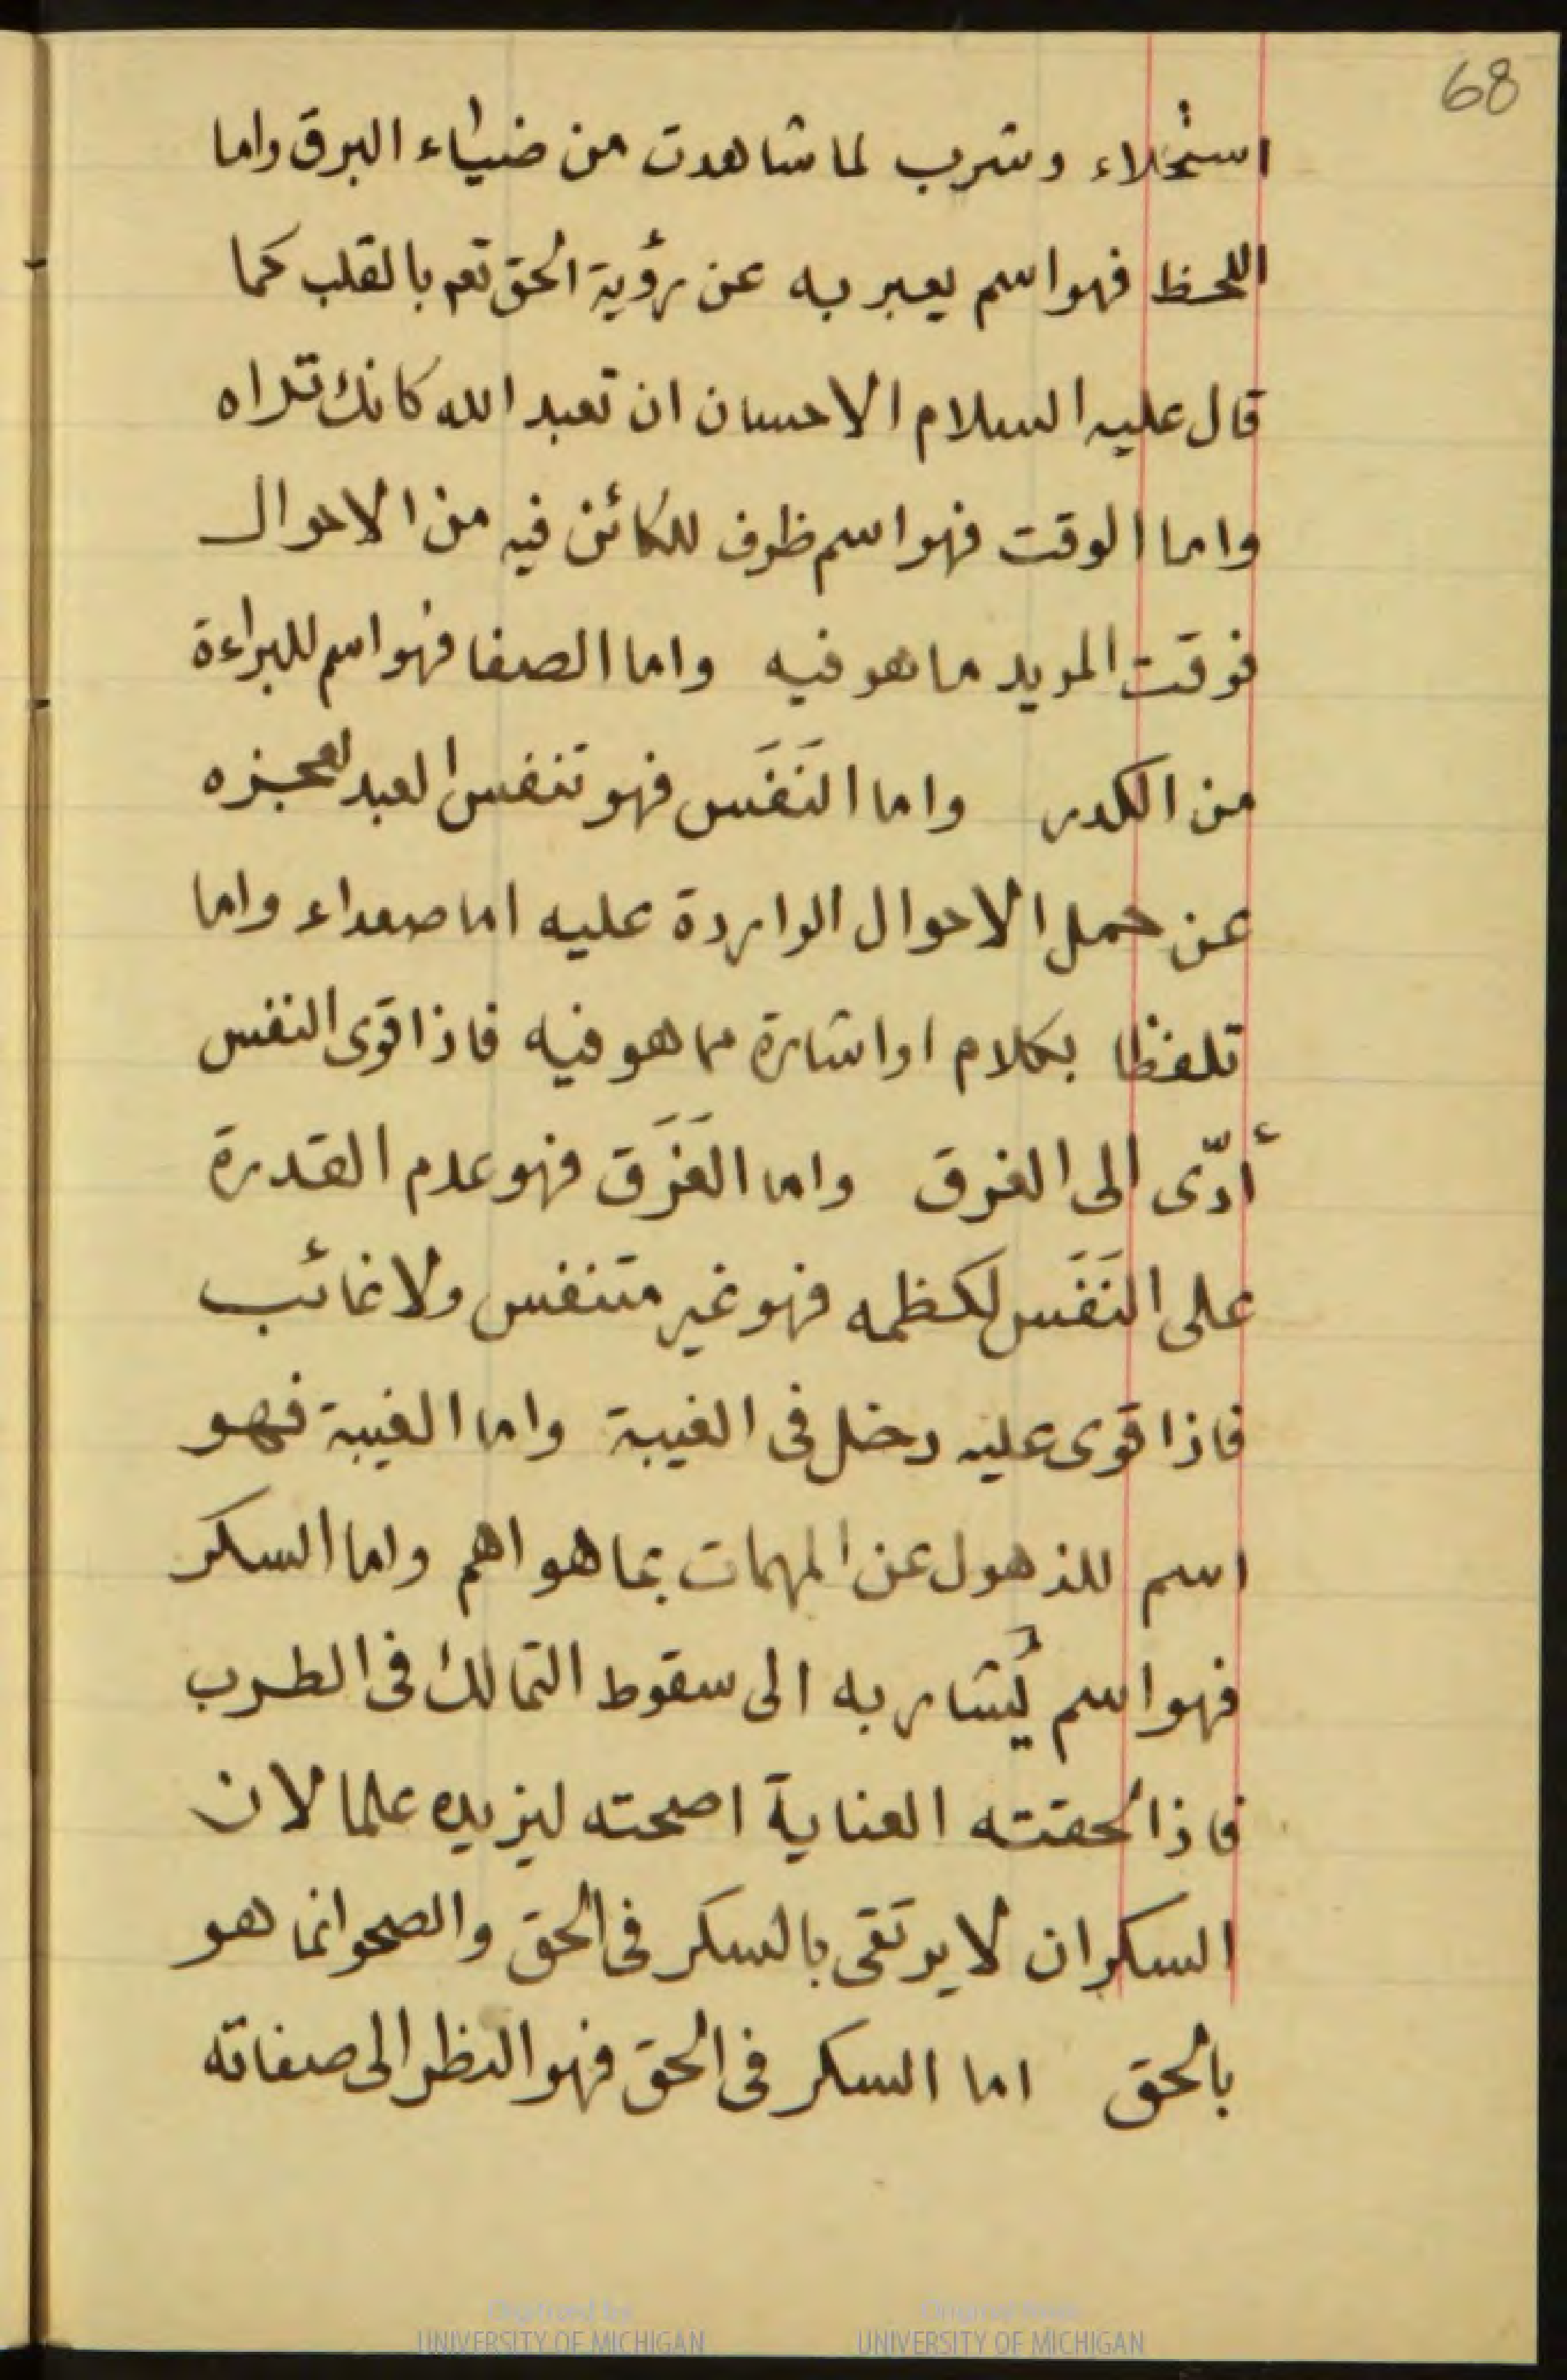 68
استحلاء وشرب لما شاهدت من ضياء البرق واما
اللحظ فهو اسم يعبر به عن رؤية الحق تعم بالقلب كما
قال عليه السلام الاحسان ان تعبد الله كانك تراه
واما الوقت فهو اسم ظرف للكائن فيه من الاحوال
فوقت المريد ما هو فيه واما الصفا فهو اسم للبراءة
من الكدر واما النَفَس فهو تنفس العبد لعجزه
عن حمل الاحوال الواردة عليه اما صعداء واما
تلفظا بكلام او اشارة مما هو فيه فاذا قوى النفس
أدّى الى الغرق واما الغَرَق فهو عدم القدرة
على النَفَس لكظمه فهو غير متنفس ولا غائب
فاذا قوى عليه دخل فى الغيبة واما الغيبة فهو
اسم للذهول عن المهمات بما هو اهم واما السكر
فهو اسم يُشار به الى سقوط التمالك فى الطرب
فاذا لحقته العناية اصحته ليزيده علما لان
السكران لا يرتقى بالسكر فى الحق والصحو انما هو
بالحق اما السكر فى الحق فهو النظر الى صفاته
Digitized by
UNIVERSITY OF MICHIGAN
Original from
UNIVERSITY OF MICHIGAN